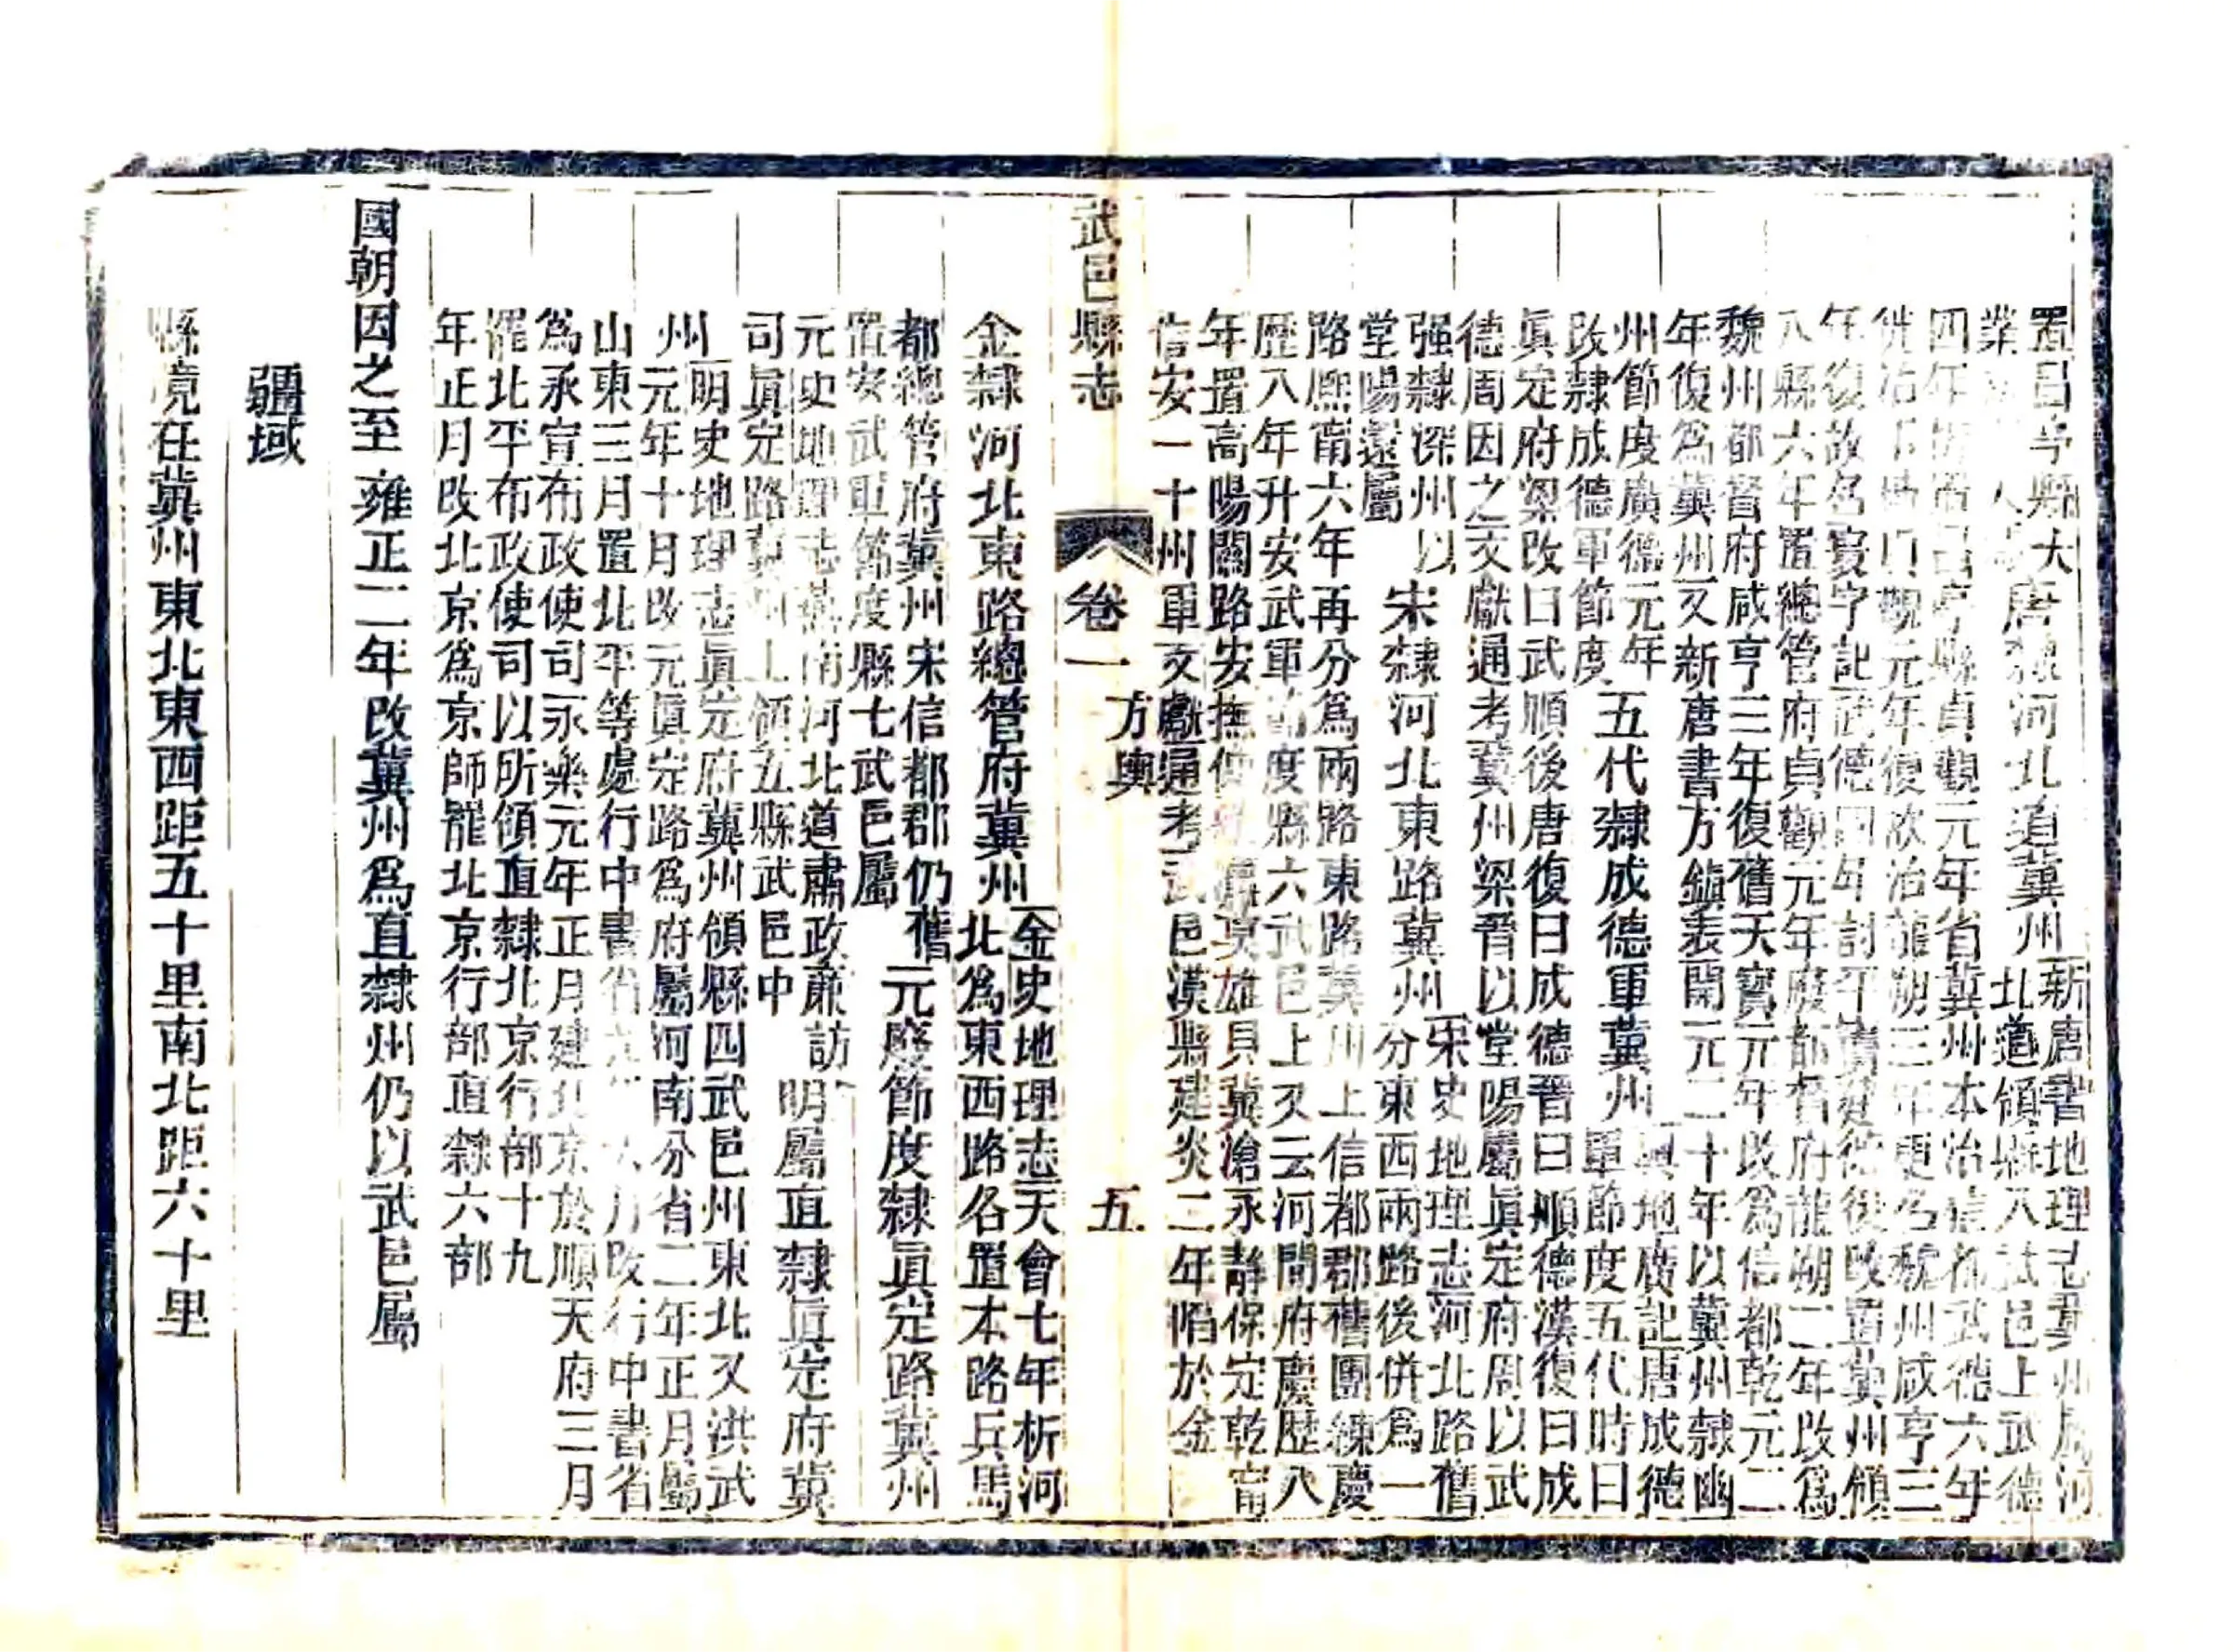 置昌亭縣大
業
唐隸河北道冀州
新唐書地理志冀州屬河
北道領縣八武邑上武德
四年析置昌亭縣貞觀元年省冀州本治信都武德六年
徙治下博貞觀元年復故治龍朔三年更名魏州咸亨三
年復故名寰宇記武德四年討平竇建德後改置冀州領
八縣六年置總管府貞觀元年廢都督府龍朔二年改爲
魏州都督府咸亨三年復舊天寶元年改爲信都乾元二
年復爲冀州又新唐書方鎮表開元二十年以冀州隸幽
州節度廣德元年
改隸成德軍節度
五代隸成德軍冀州
輿地廣記唐成德
軍節度五代時曰
眞定府梁改曰武順後唐復曰成德晉曰順德漢復曰成
德周因之文獻通考冀州梁晉以堂陽屬眞定府周以武
强隸深州以
堂陽還屬
宋隸河北東路冀州
宋史地理志河北路舊
分東西兩路後併爲一
路熈甯六年再分爲兩路東路冀州上信都郡舊團練慶
歷八年升安武軍節度縣六武邑上又云河間府慶歷八
年置高陽關路安撫使統瀛莫雄貝冀滄永靜保定乾甯
信安一十州軍文獻通考武邑漢縣建炎二年陷於金
武邑縣志
卷一
方輿
五
金隸河北東路總管府冀州
金史地理志天會七年析河
北爲東西路各置本路兵馬
都總管府冀州宋信都郡仍舊
置安武軍節度縣七武邑屬
元廢節度隸眞定路冀州
元史地理志燕南河北道肅政廉訪
司眞定路冀州上領五縣武邑中
明屬直隸眞定府冀
州
明史地理志眞定府冀州領縣四武邑州東北又洪武
元年十月改元眞定路爲府屬河南分省二年正月屬
山東三月置北平等處行中書省九年六月改行中書省
爲承宣布政使司永樂元年正月建北京於順天府三月
罷北平布政使司以所領直隸北京行部十九
年正月改北京爲京師罷北京行部直隸六部
國朝因之至雍正二年改冀州爲直隸州仍以武邑屬
疆域
縣境在冀州東北東西距五十里南北距六十里